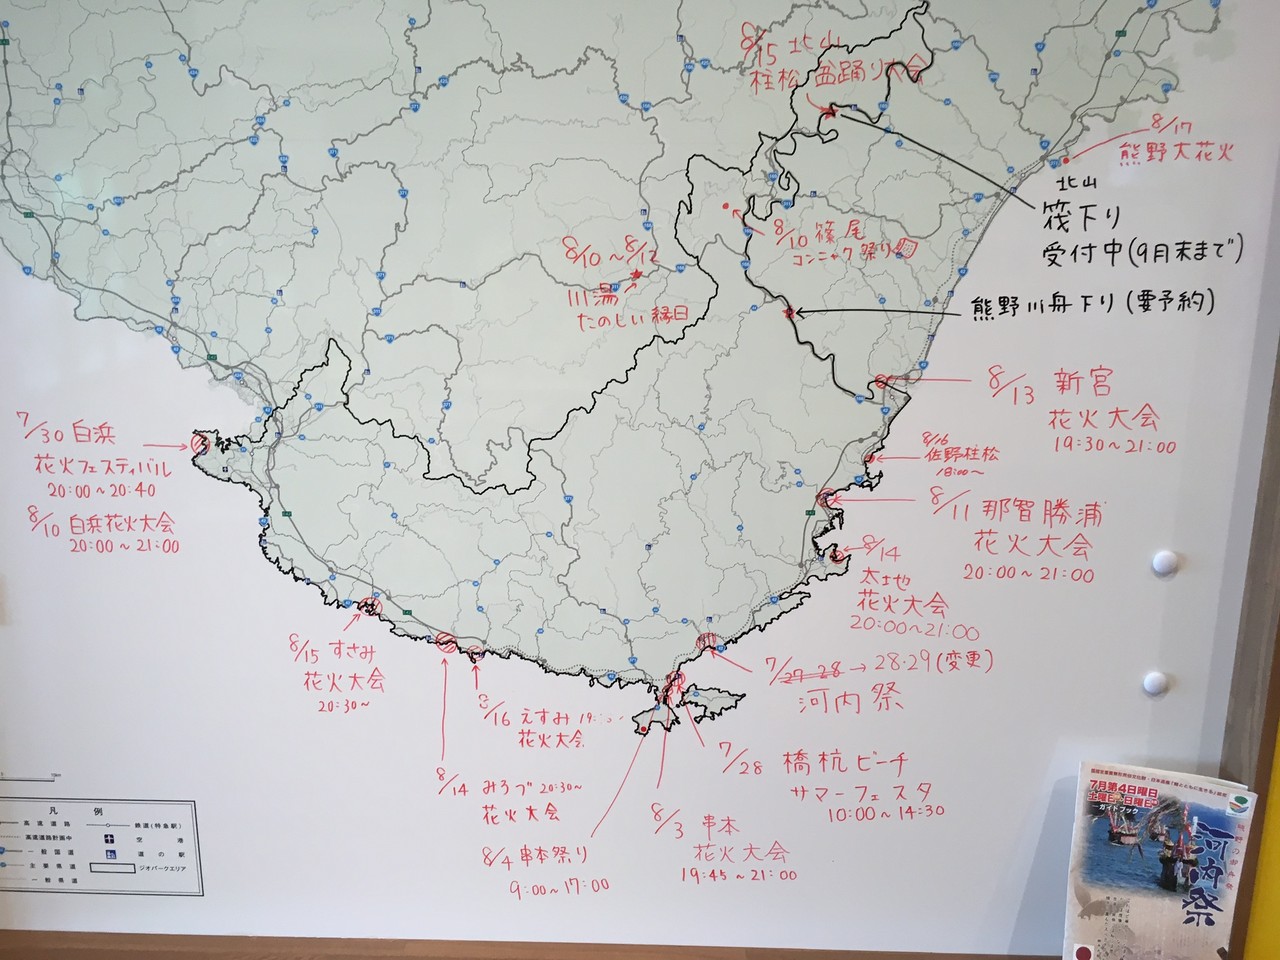 8/15 北山
柱松 盆踊り大会
8/17
熊野大花火
北山
筏下り
受付中(9月末まで)
8/10 篠尾
コンニャク祭り
8/10～8/12
川湯
たのしい縁日
熊野川舟下り(要予約)
8/13 新宮
花火大会
19:30～21:00
8/16
佐野柱松
18:00～
7/30 白浜
花火フェスティバル
20:00～20:40
8/10 白浜花火大会
20:00～21:00
8/11 那智勝浦
花火大会
20:00～21:00
8/14
太地
花火大会
20:00～21:00
8/15 すさみ
花火大会
20:30～
7/27-28→28・29(変更)
河内祭
8/16 えすみ
花火大会
7/28 橋杭ビーチ
サマーフェスタ
10:00～14:30
8/14 みろづ 20:30～
花火大会
8/3 串本
花火大会
19:45～21:00
8/4 串本祭り
9:00～17:00
凡例
高速道路
鉄道(特急駅)
高速道路計画中
空港
一般国道
道の駅
主要県道
ジオパークエリア
一般県道
7月第4日曜日
土曜日～日曜日
ガイドブック
河内祭